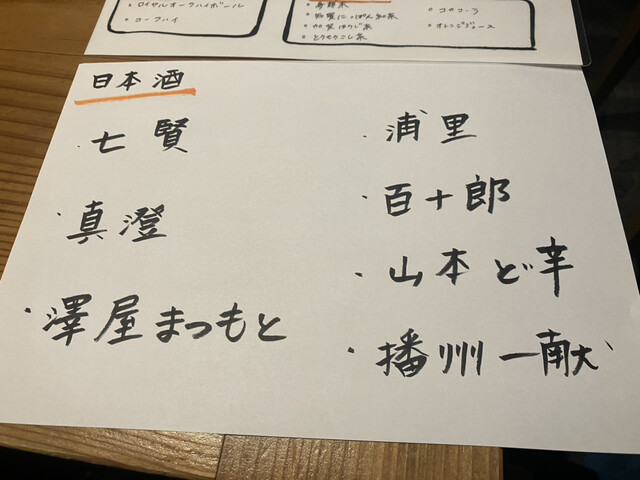 ・ロイヤルオークハイボール
・コークハイ
・加賀ほうじ茶
・とうもろこし茶
・コカコーラ
・オレンジジュース
日本酒
・七賢
・真澄
・澤屋まつもと
・浦里
・百十郎
・山本 ど辛
・播州一献